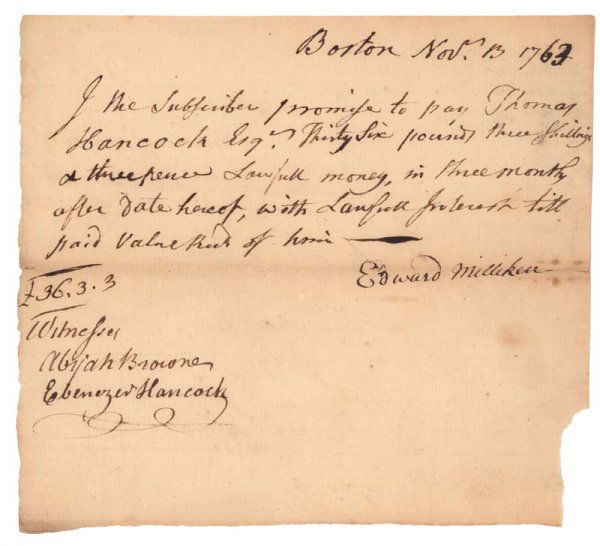 Boston Novr. 13 1763
I the Subscriber promise to pay Thomas
Hancock Esqr. Thirty Six pounds three Shillings
& three pence Lawfull money, in three months
after Date hereof, with Lawfull Interest till
paid Value Recd of him
Edward Milliken
£36.3.3
Witnesses
Abijah Browne
Ebenezer Hancock